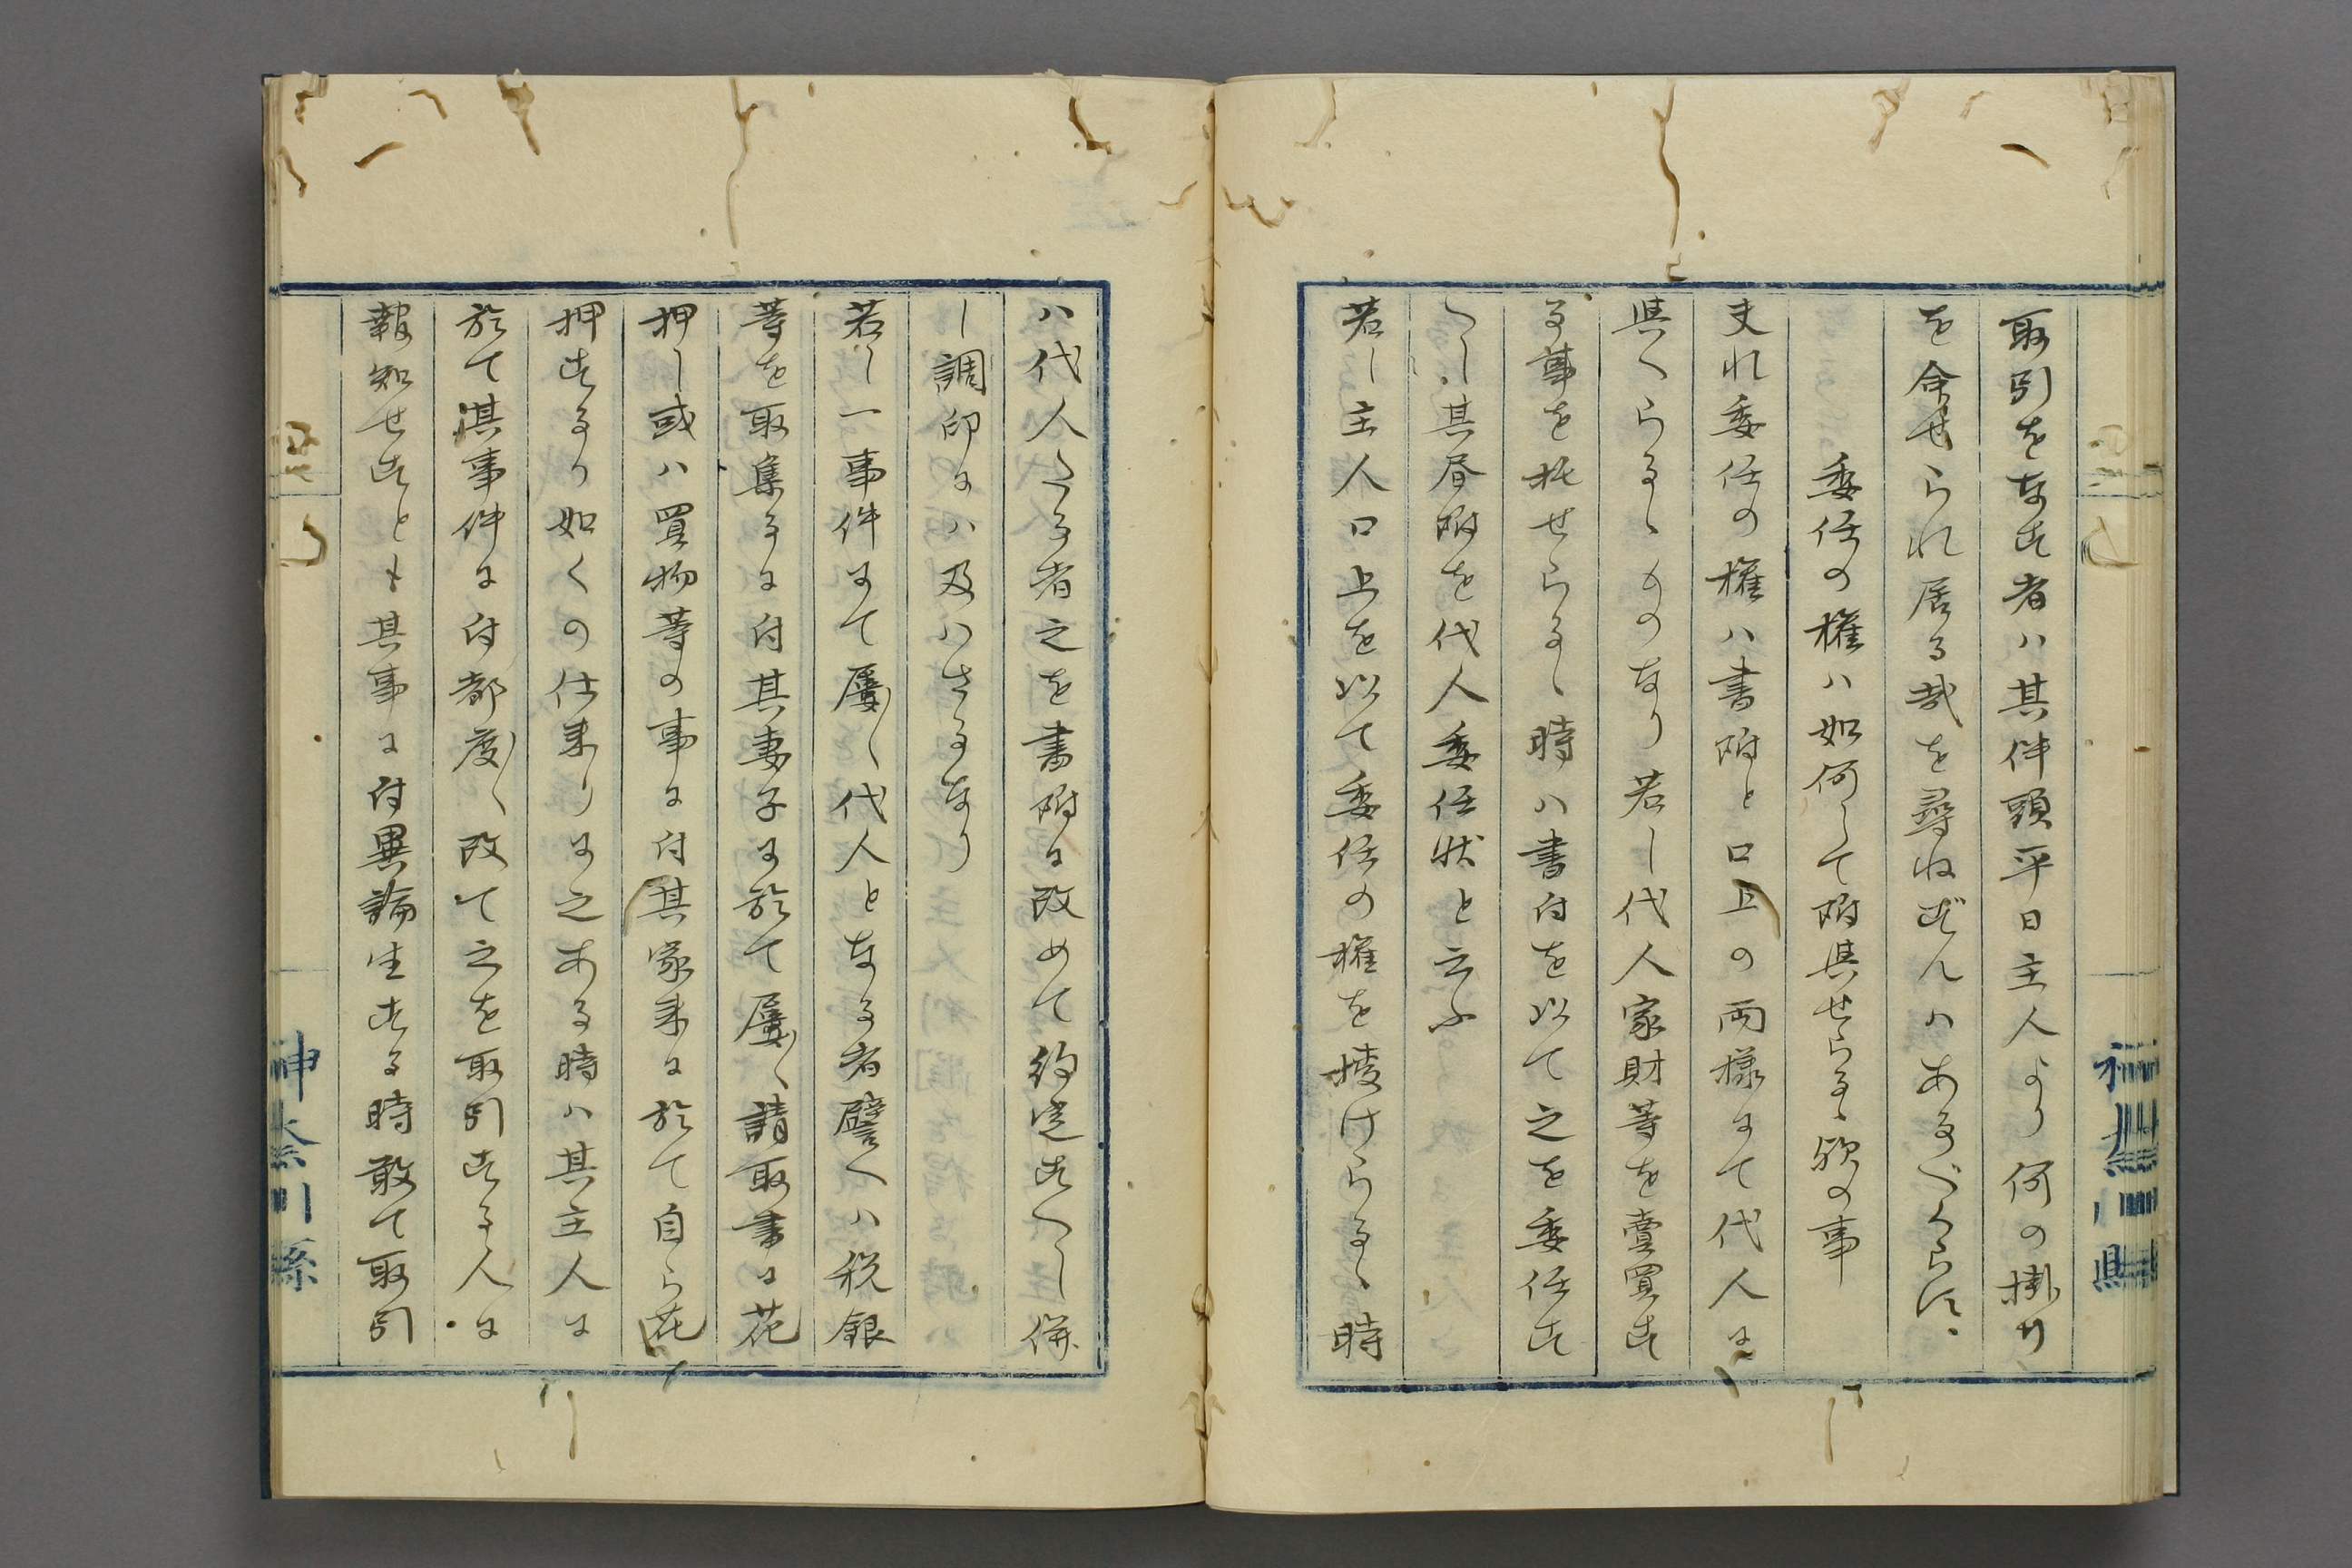 取引をなす者ハ其件頭平日主人より何の掛り
を命せられ居る哉を尋ねずんハあるべからす
委任の権ハ如何して附與せらるゝ歟の事
夫れ委任の権ハ書附と口上の両様にて代人に
與へらるゝものなり若し代人家財等を賣買す
る事を托せらるゝ時ハ書付を以て之を委任す
へし其书附を代人委任状と云ふ
若し主人口上を以て委任の権を授けらるゝ時
ハ代人たる者之を書附に改めて約定すへし併
し調印にハ及ハさるなり
若し一事件にて屡〱代人となる者譬へハ税銀
等を取集るに付其妻子に於て屡〱請取書に花
押し或ハ買物等の事に付其家来に於て自ら花
押するり如くの仕来りに之ある時ハ其主人に
於て其事件に付都度〱改て之を取引する人に
報知せすとも其事に付異論生する時敢て取引
神奈川縣